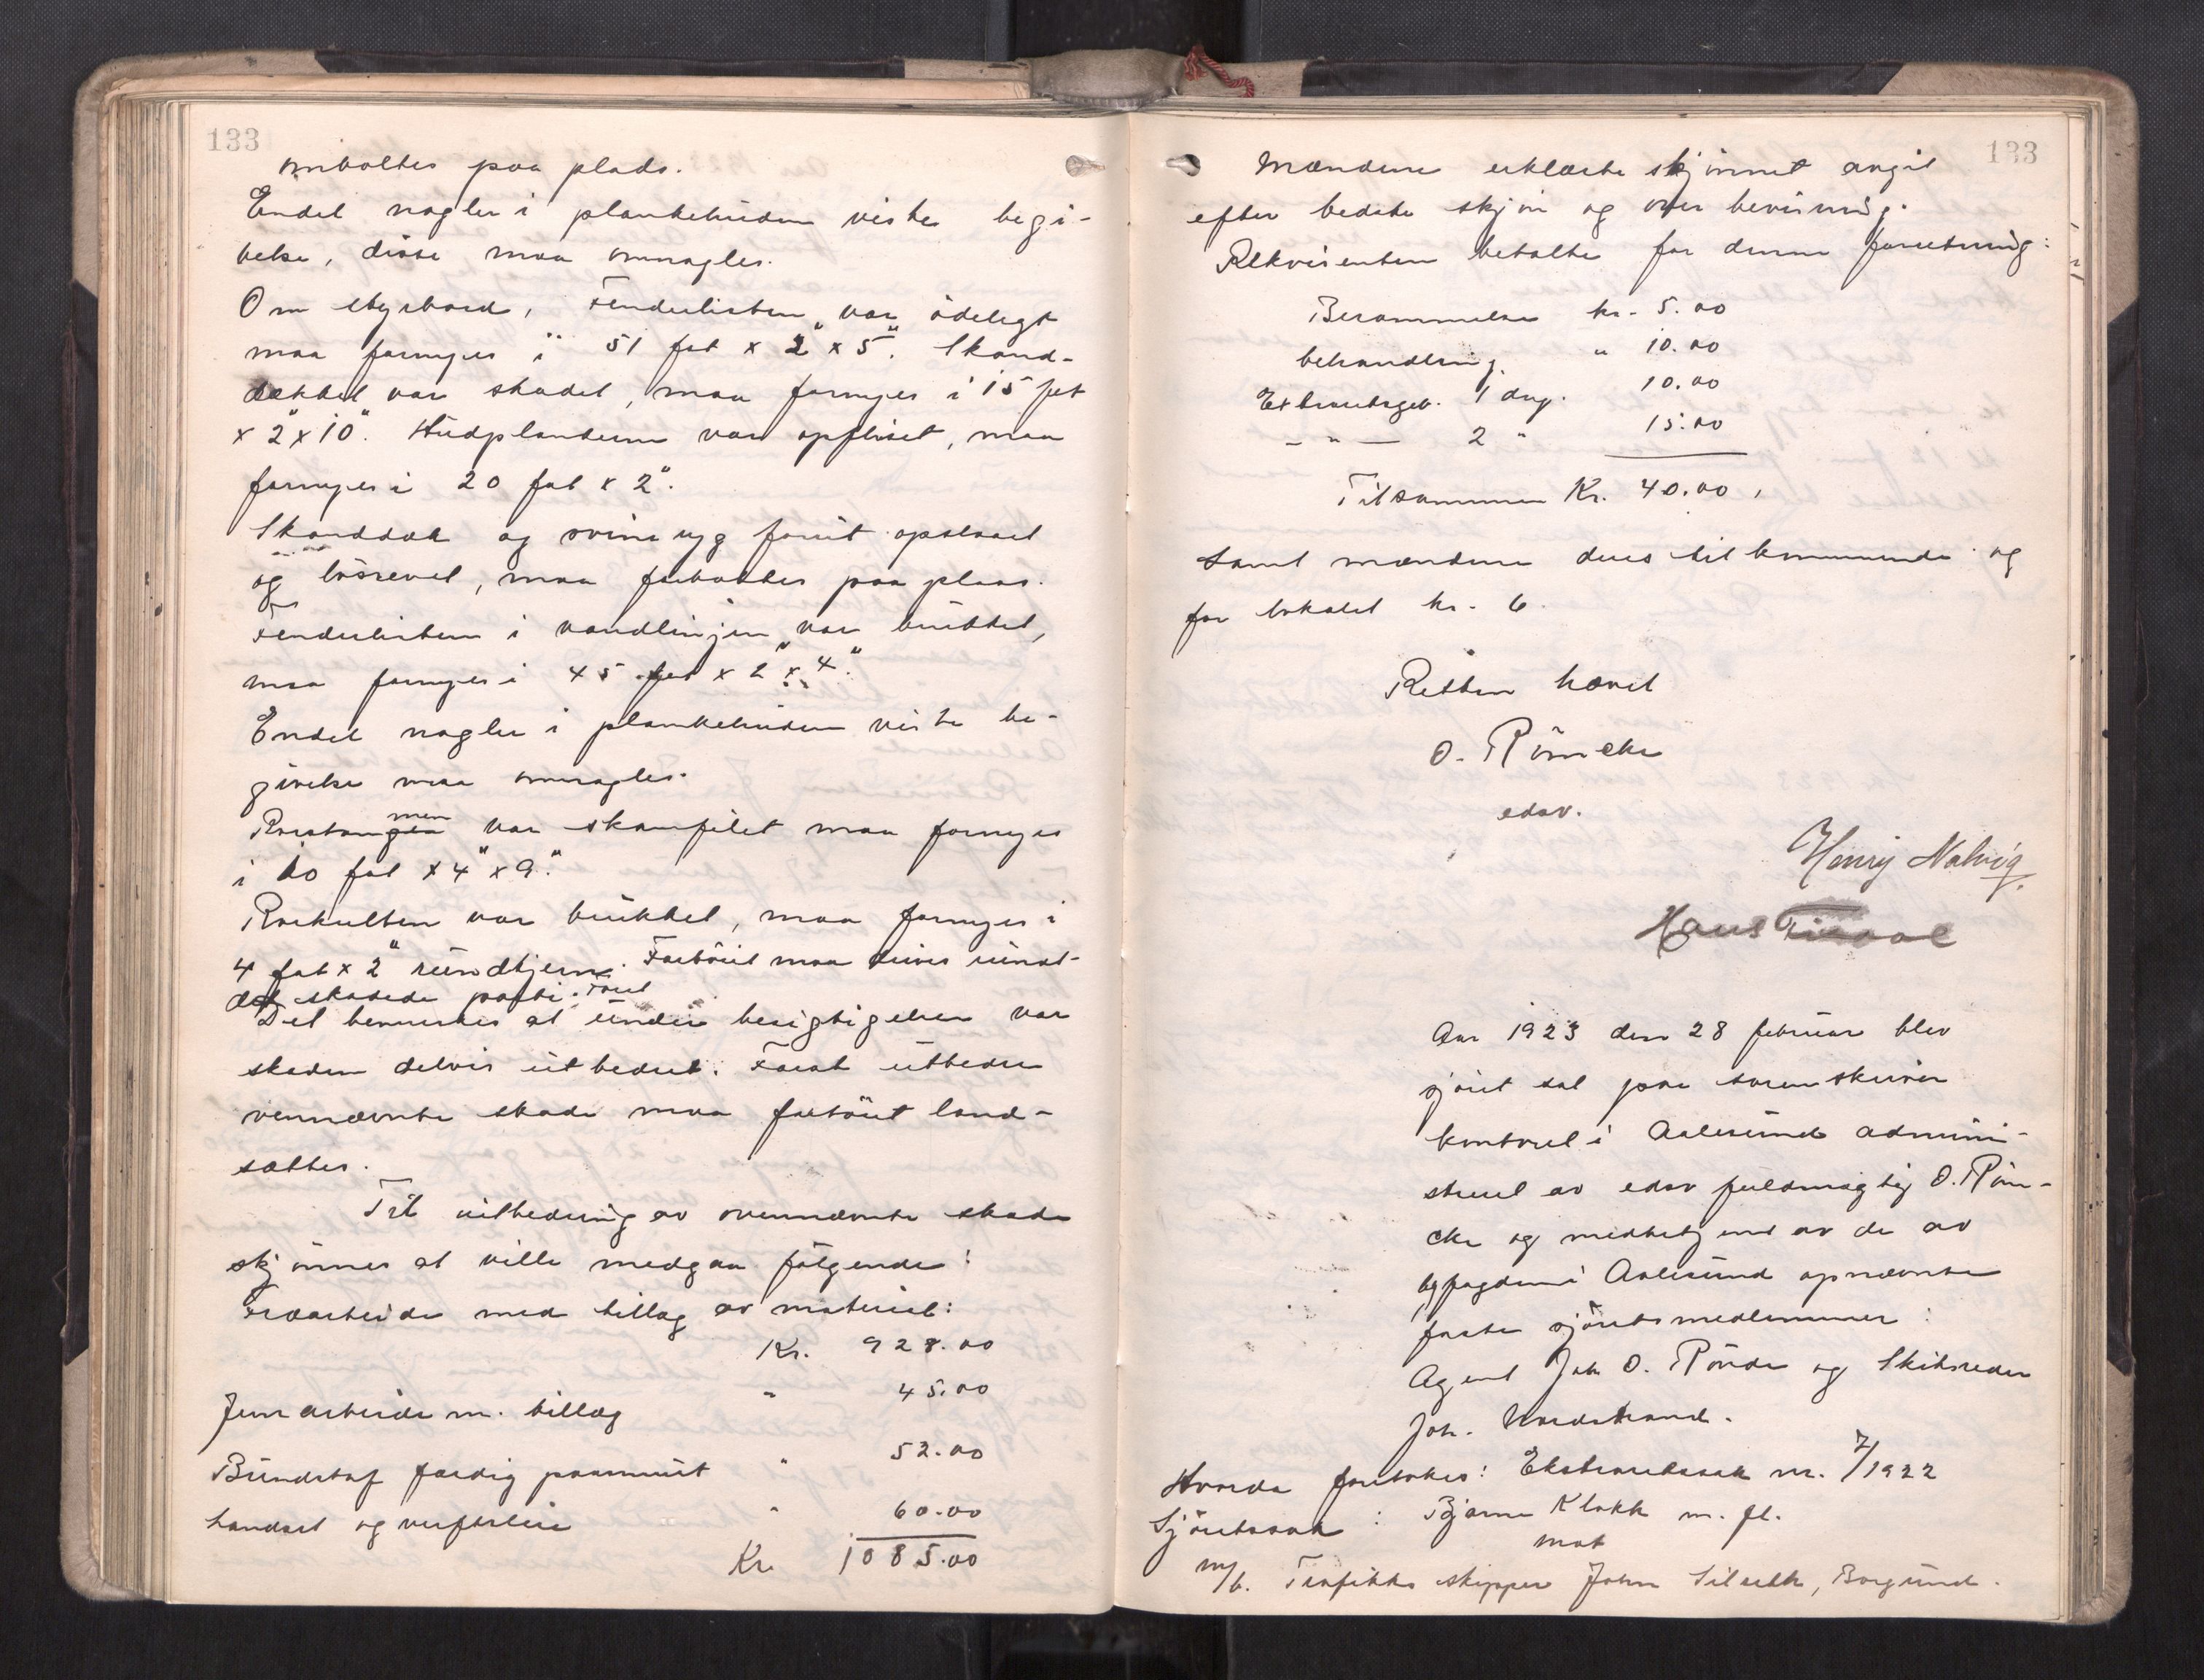 133
omboltes paa plads.
Endel nagler i plankehuden viste begi-
velse, disse maa omnagles.
Om styrbord, Fenderlisten var ödelagt
maa fornyes i 51 fot x 2" x 5". Skand-
dækket var skadet, maa fornyes i 15 fot
x 2" x 10". Hudplankerne var opfliset, maa
fornyes i 20 fot x 2".
Skanddæk og svineryg forut opslaaet
og lösrevet, maa forboltes paa plass.
Fenderlisten i vandlinjen var brükket,
maa fornyes i 45 fot x 2" x 4".
Endel nagler i plankehuden viste be-
givelse maa omnagles.
Rorstammen var skamfilet maa fornyes
i 10 fot x 4" x 9".
Rorkulten var brükket, maa fornyes i
4 fot x 2" rundtjern. Fartöiet maa drives rundt
det skadede parti.
Det bemerkes at ünder besigtigelsen var
skaden delvis ütbedret. For at ütbedre
nævnte skade maa fartöiet land-
sættes.
Til ütbedring av ovennævnte skade
skjönnes at ville medgaa fölgende:
Træarbeide med tillæg av materiel:
Kr. 928.00
Jernarbeide m. tillæg " 45.00
Bundstof færdig paasmürt " 52.00
Landset og verftsleie " 60.00
Kr. 1085.00
133
Mændene erklærte skjönnet avgit
efter bedste skjön og overbevisning.
Rekvirenten betalte for denne forretning:
Berammelse kr. 5.00
behandling " 10.00
Extraretsgeb. 1 dag. 10.00
- " - 2 " 15.00
Tilsammen Kr. 40.00,
samt mændene deres tilkommende og
for lokalet kr. 6.
Retten hævet
O. Röncke
edsv.
Henry Nalvig.
Hans
Aar 1923 den 28 februar blev
sjöret sat paa sorenskriver
kontoret i Aalesünd admini-
streret av edsv fuldmægtig O. Rön-
cke og medbetjent av de av
byfogden i Aalesünd opnævnte
faste sjöretsmedlemmer:
Agent Joh O. Rönde og Skibsreder
Joh. Nordstrand.
Hvorda foretokes: Ekstraretssak nr. 7/1922
Sjöretssak: Bjarne Klokk m. fl.
mot
m/b. Trafikks skipper John Silseth, Borgünd.